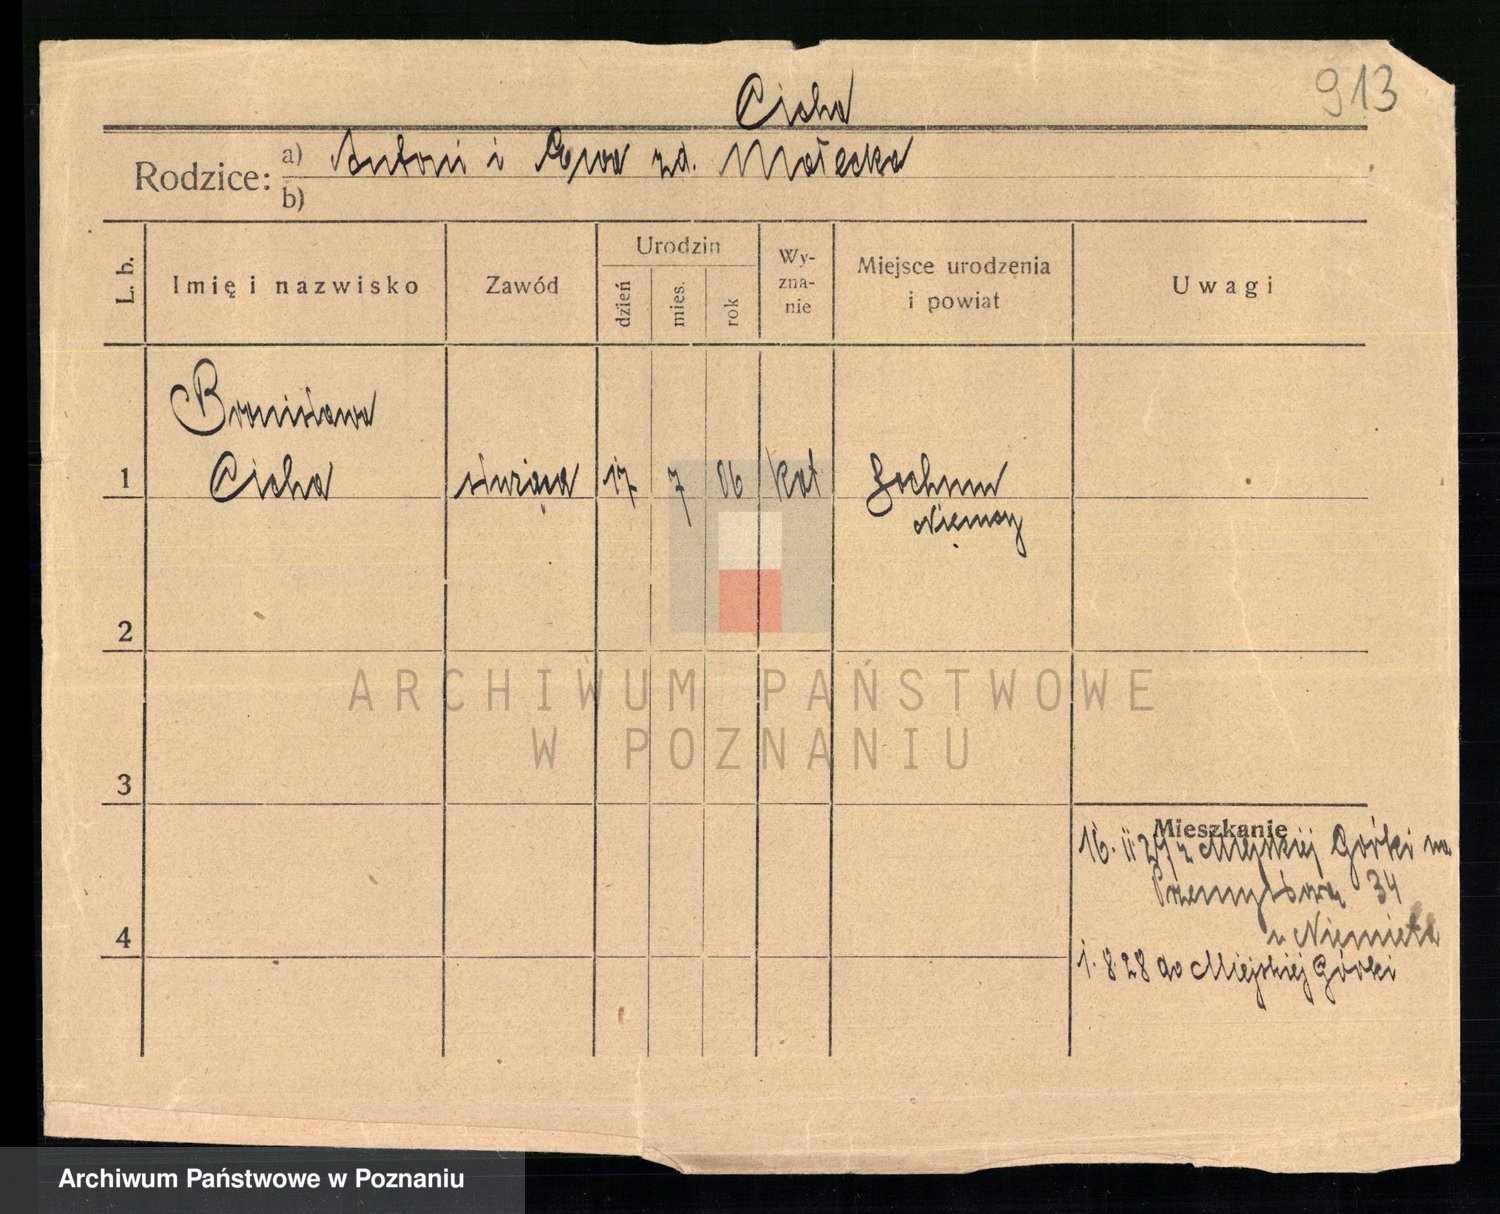 913
Cicha
Rodzice: a) Antoni i Ewa zd. Małecka
b)
L. b.
Imię i nazwisko
Zawód
Urodzin
dzień
mies.
rok
Wy-
zna-
nie
Miejsce urodzenia
i powiat
Uwagi
Bronisława
1 Cicha służąca 17 7 06 kat Bochum
Niemcy
2
3
4
Mieszkanie
16. II 27 z Miejskiej Górki na
34
u Niemietz
1.8.28 do Miejskiej Górki
ARCHIWUM PAŃSTWOWE
W POZNANIU
Archiwum Państwowe w Poznaniu